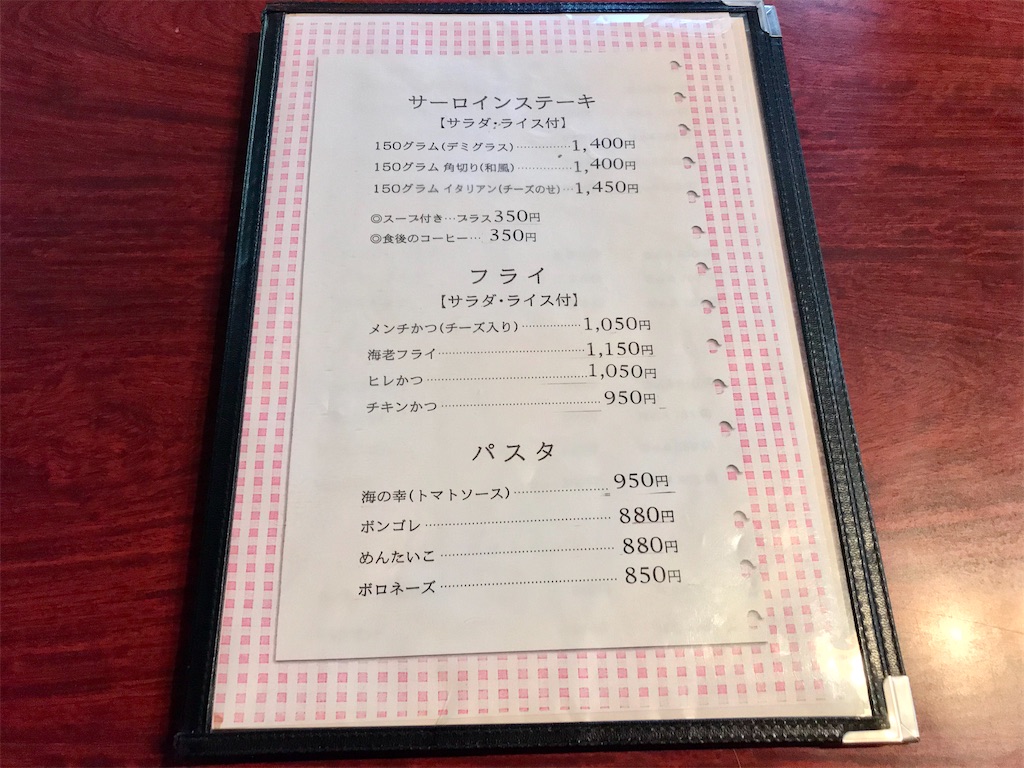 サーロインステーキ
【サラダ・ライス付】
150グラム(デミグラス)……………1,400円
150グラム 角切り(和風)……………1,400円
150グラム イタリアン(チーズのせ)…1,450円
◎スープ付き…プラス350円
◎食後のコーヒー… 350円
フライ
【サラダ・ライス付】
メンチかつ(チーズ入り)………………1,050円
海老フライ……………………………………1,150円
ヒレかつ………………………………………1,050円
チキンかつ……………………………………950円
パスタ
海の幸(トマトソース)……………………950円
ボンゴレ……………………………………880円
めんたいこ…………………………………880円
ボロネーズ…………………………………850円